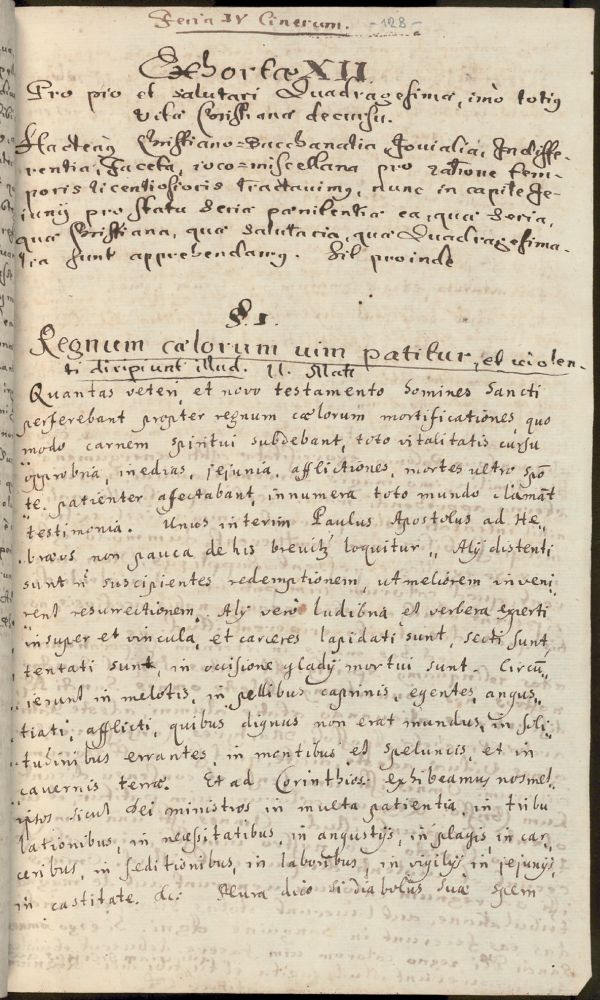 Feria IV Cinerum. -128-
Exhortæ XII
Pro pio et salutari Quadragesimæ, imò totiȝ
vitæ Christianæ decursu.
Hactenȝ Christiano=Bacchanalia, Jovialia, Indiffe-
rentia, Faceta, ioco=miscellana pro ratione tem-
poris licentiosioris tractavimȝ, nunc in capite Je-
iunij pro statu Seriæ pœnitentiæ ea, quæ Seria,
quæ Christiana, quæ Salutaria, quæ Quadragesima-
lia sunt apprehendamȝ. Sit proinde
§. 1.
Regnum cælorum uim patitur, et violen-
ti diripiunt illud. 11. Matt
Quantas veteri et novo testamento homines Sancti
perferebant propter regnum cælorum mortificationes, quo
modo carnem spiritui subdebant, toto vitalitatis cursu
opprobria, inedias, jejunia, afflictiones, mortes ultro spō
te patienter afectabant, innumera toto mundo clāmāt
testimonia. Unus interim Paulus Apostolus ad He„
bræos non pauca de his breuitȝ loquitur „ Alÿ distenti
sunt n̄ suscipientes redemptionem, ut meliorem inveni„
rent resurrectionem. Alÿ verò ludibria et verbera experti
insuper et vincula, et carceres lapidati sunt, secti sunt,
tentati sunt, in occisione gladÿ mortui sunt. Circū„
ierunt in melotis, in pellibus caprinis, egentes, angus„
tiati, afflicti, quibus dignus non erat mundus, in soli„
tudinibus errantes, in montibus et speluncis, et in
cavernis terræ. Et ad Corinthios: exhibeamus nosmet„
ipsos sicut Dei ministros in multa patientia, in tribu
lationibus, in necessitatibus, in angustÿs, in plagis, in car„
ceribus, in seditionibus, in laboribus, in vigilÿs in jejunÿs,
in castitate. &c: Plura dico si diabolus suā spem